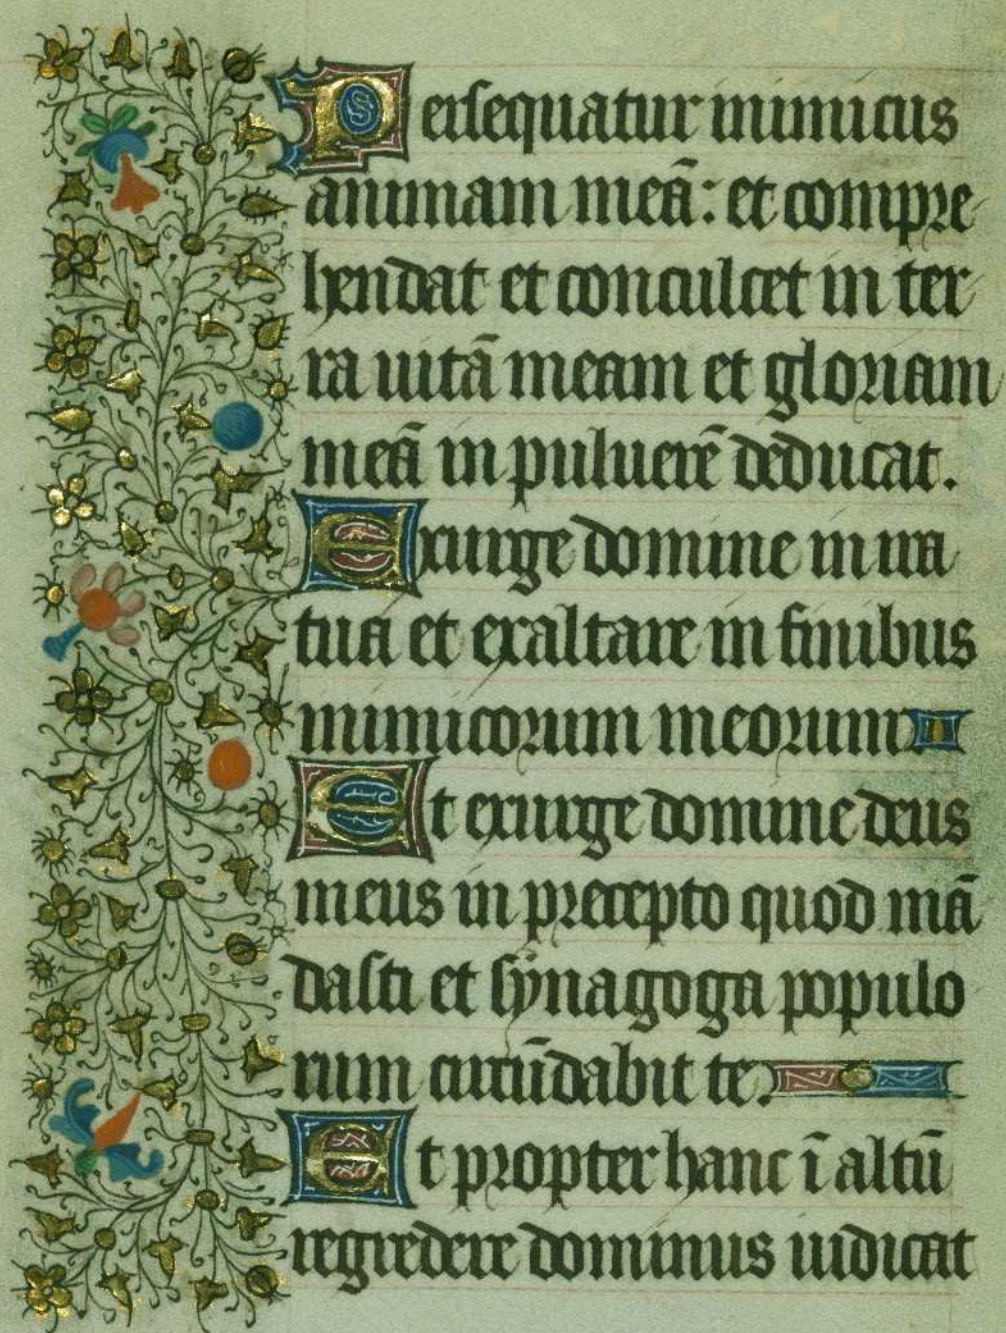 Persequatur inimicus
animam meā: et compre
hendat et conculcet in ter
ra uitā meam et gloriam
meā in puluerē deducat.
Exurge domine in ira
tua et exaltare in finibus
inimicorum meorum
Et exurge domine deus
meus in precepto quod mā
dasti et synagoga populo
rum circūdabit te.
Et propter hanc ī altū
regredere dominus iudicat